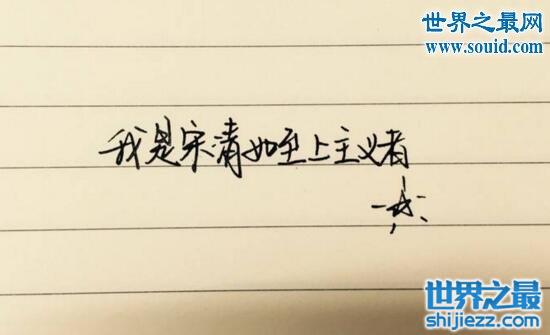 世界之最网
www.souid.com
我是宋清如至上主义者
世界之最
shijiezz.com